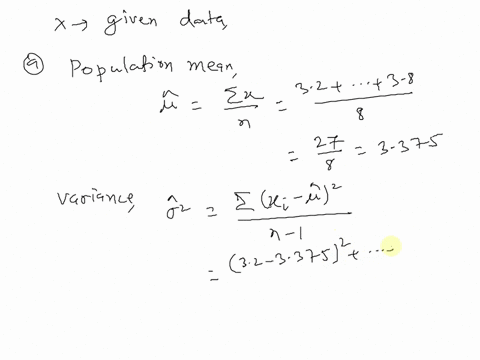 x → given data,
ⓐ Population mean,
μ̂ = Σx/n = 3.2 + ... + 3.8/8
= 27/8 = 3.375
variance, σ̂² = Σ(xᵢ - μ̂)²/n-1
= (3.2 - 3.375)² + ....